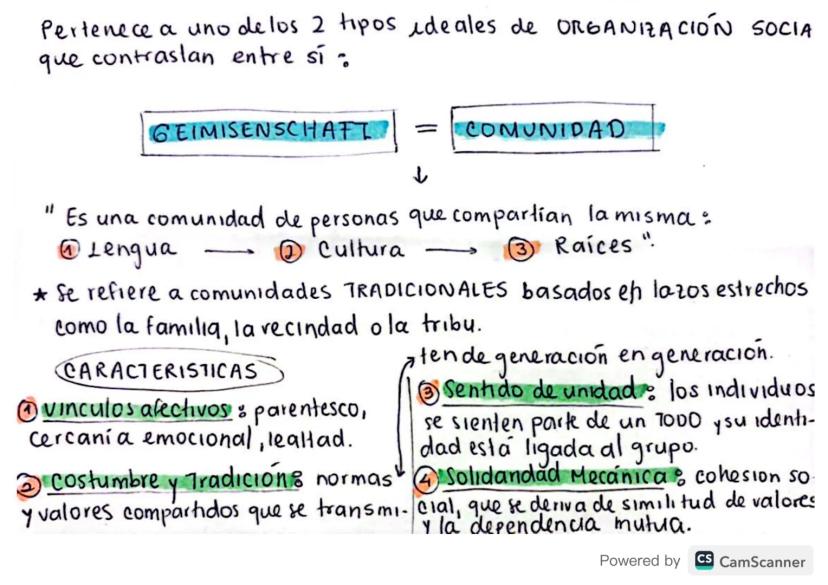 Pertenece a uno de los 2 tipos ideales de ORGANIZACIÓN SOCIA
que contrastan entre sí :
GEIMISENSCHAFT = COMUNIDAD
↓
" Es una comunidad de personas que compartían la misma :
① Lengua → ② Cultura → ③ Raíces ".
★ Se refiere a comunidades TRADICIONALES basados en lazos estrechos
como la familia, la vecindad o la tribu.
CARACTERISTICAS
① vinculos afectivos : parentesco,
cercanía emocional, lealtad.
② Costumbre y Tradición : normas
y valores compartidos que se transmi-
ten de generación en generación.
③ Sentido de unidad : los individuos
se sienten parte de un TODO y su identi-
dad está ligada al grupo.
④ Solidaridad Mecánica : cohesion so
cial, que se deriva de similitud de valores
y la dependencia mutua.
Powered by CS CamScanner